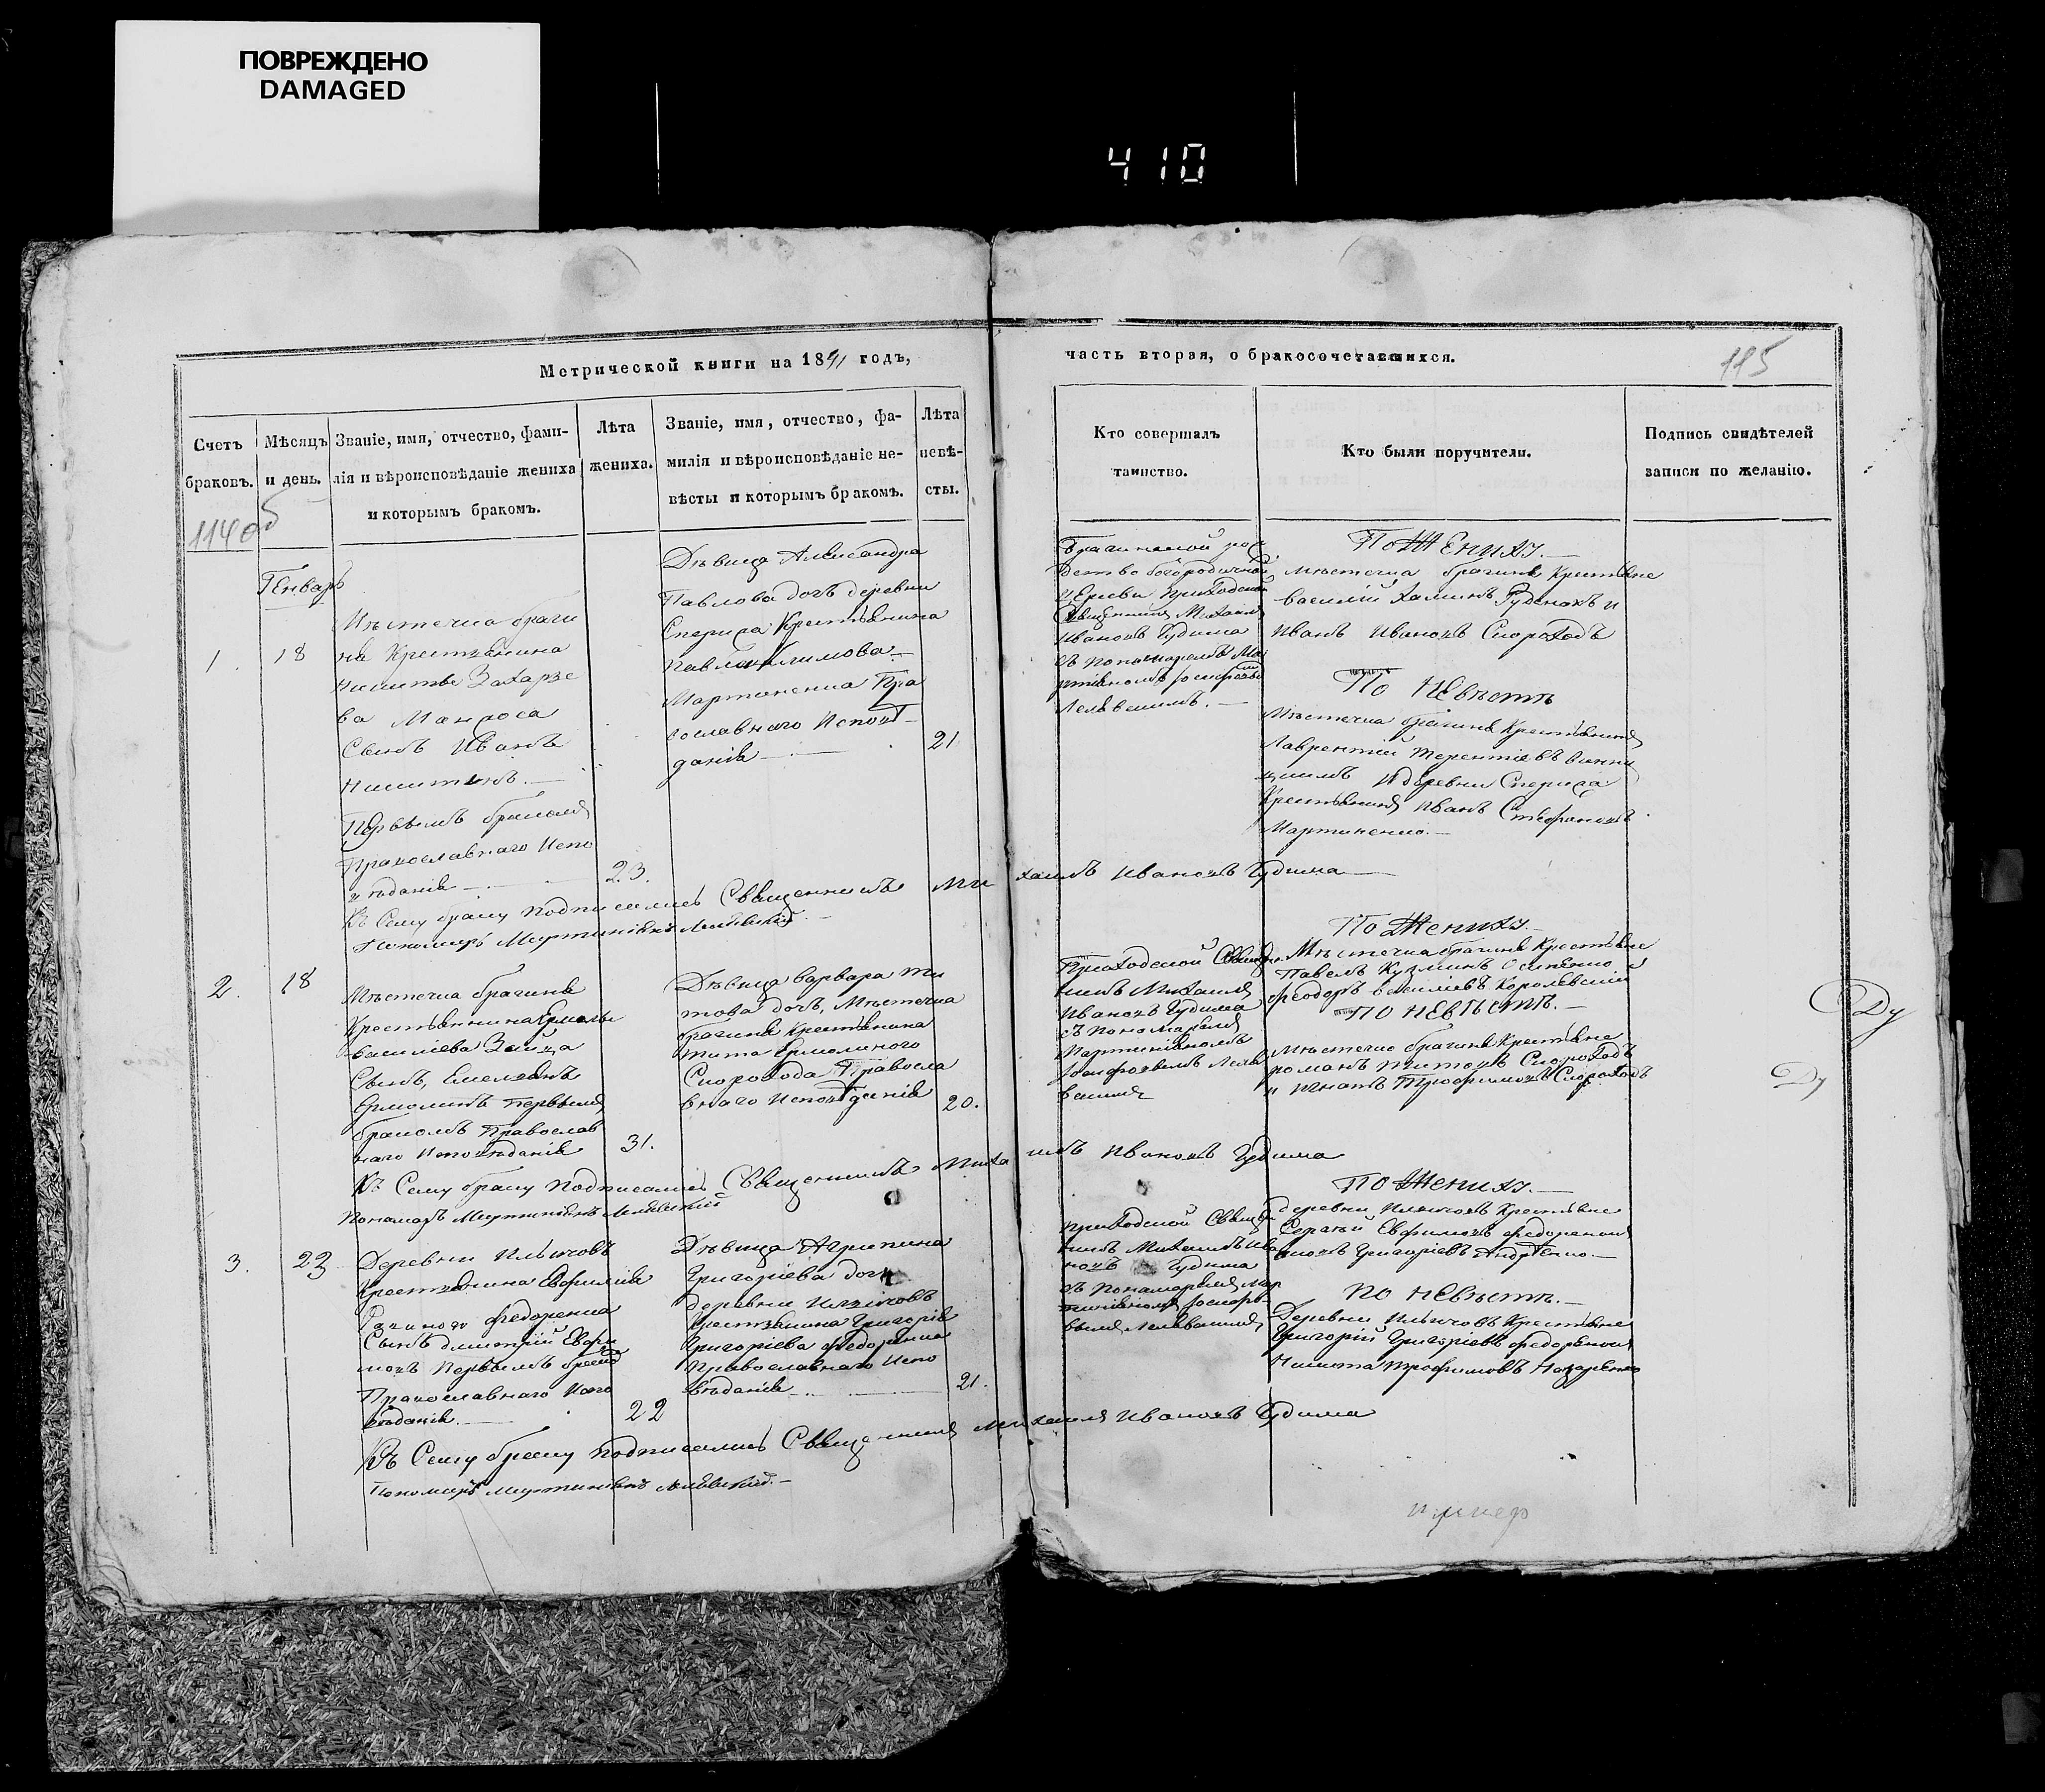 ПОВРЕЖДЕНО
DAMAGED
410
Метрической книги на 1841 годъ,
часть вторая, о бракосочетавшихся.
115
Счетъ браковъ.
Мѣсяцъ и день.
Званіе, имя, отчество, фами-
лія и вѣроисповѣданіе жениха
и которымъ бракомъ.
Лѣта
жениха.
Званіе, имя, отчество, фа-
милія и вѣроисповѣданіе не-
вѣсты и которымъ бракомъ.
Лѣта
невѣ-
сты.
Кто совершалъ
таинство.
Кто были поручители.
Подпись свидѣтелей
записи по желанію.
114 об
Генварь
1.
18
Мѣстечка браги
на Крестьянина
Никиты Захарье
ва
Сынъ Иванъ
Никитинъ.
Первымъ бракомъ
Православнаго Испо
вѣданія
23.
Дѣвица Александра
Павлова дочь деревни
Спериса Крестьянина
Павла Климова
Мартиненка Пра
вославнаго Исповѣ
данія
21
Брагинской рож
детво богородичной
Церкви Приходской
Священникъ Михаилъ
Ивановъ Гудима
съ пономаремъ Ма
По Женихѣ.
Мѣстечка брагина Крестьяне
василій и
Иванъ Ивановъ Скороходъ
По Невѣстѣ
Мѣстечка брагина Крестьянинъ
Лаврентій Терентіевъ
и деревни Спериса
Крестьянинъ Иванъ Стефановъ
Мартиненко.
Къ Сему браку подписались Священникъ Михаилъ Ивановъ Гудима
Пономарь
2.
18
Мѣстечка брагина
Крестьянина Ермолы
василіева Зайца
Сынъ, Емельянъ
Ермолинъ первымъ
бракомъ Православ
наго Исповѣданія
31.
Дѣвица варвара Ти
това дочь, Мѣстечка
брагина Крестьянина
Тита Ермолиного
Скорохода Правосла
внаго Исповѣданія
20.
Приходской Священ
никъ Михаилъ
Ивановъ Гудима
съ пономаремъ
По Женихѣ.
Мѣстечка брагина Крестьяне
Павелъ Кузминъ и
феодоръ василіевъ Королевскій
По Невѣстѣ.
Мѣстечка брагина Крестьяне
романъ Титовъ Скороходъ
и Игнатъ Трофимовъ Скороходъ
Къ Сему браку подписались Священникъ Михаилъ Ивановъ Гудима
Пономарь
3.
23
Деревни Ильичовъ
Крестьянина Евфимія
федоренка
Сынъ димитрій Евфи
мовъ Первымъ бракомъ
Православнаго Испо
вѣданія.
22
Дѣвица Агрипина
Григоріева дочь
деревни Ильичовъ
Крестьянина Григорія
Григоріева федоренка
Православнаго Испо
вѣданія
21.
приходской Священ
никъ Михаилъ Ива
новъ Гудима
съ Пономаремъ Мар
По Женихѣ.
деревни Ильичовъ Крестьяне
Сергѣй Евфимовъ федоренко
Григоріевъ
По Невѣстѣ.
Деревни Ильичовъ Крестьяне
Григорій Григоріевъ федоренко
Никита Трофимовъ Назаренко
Къ Сему браку подписались Священникъ Михаилъ Ивановъ Гудима
Пономарь